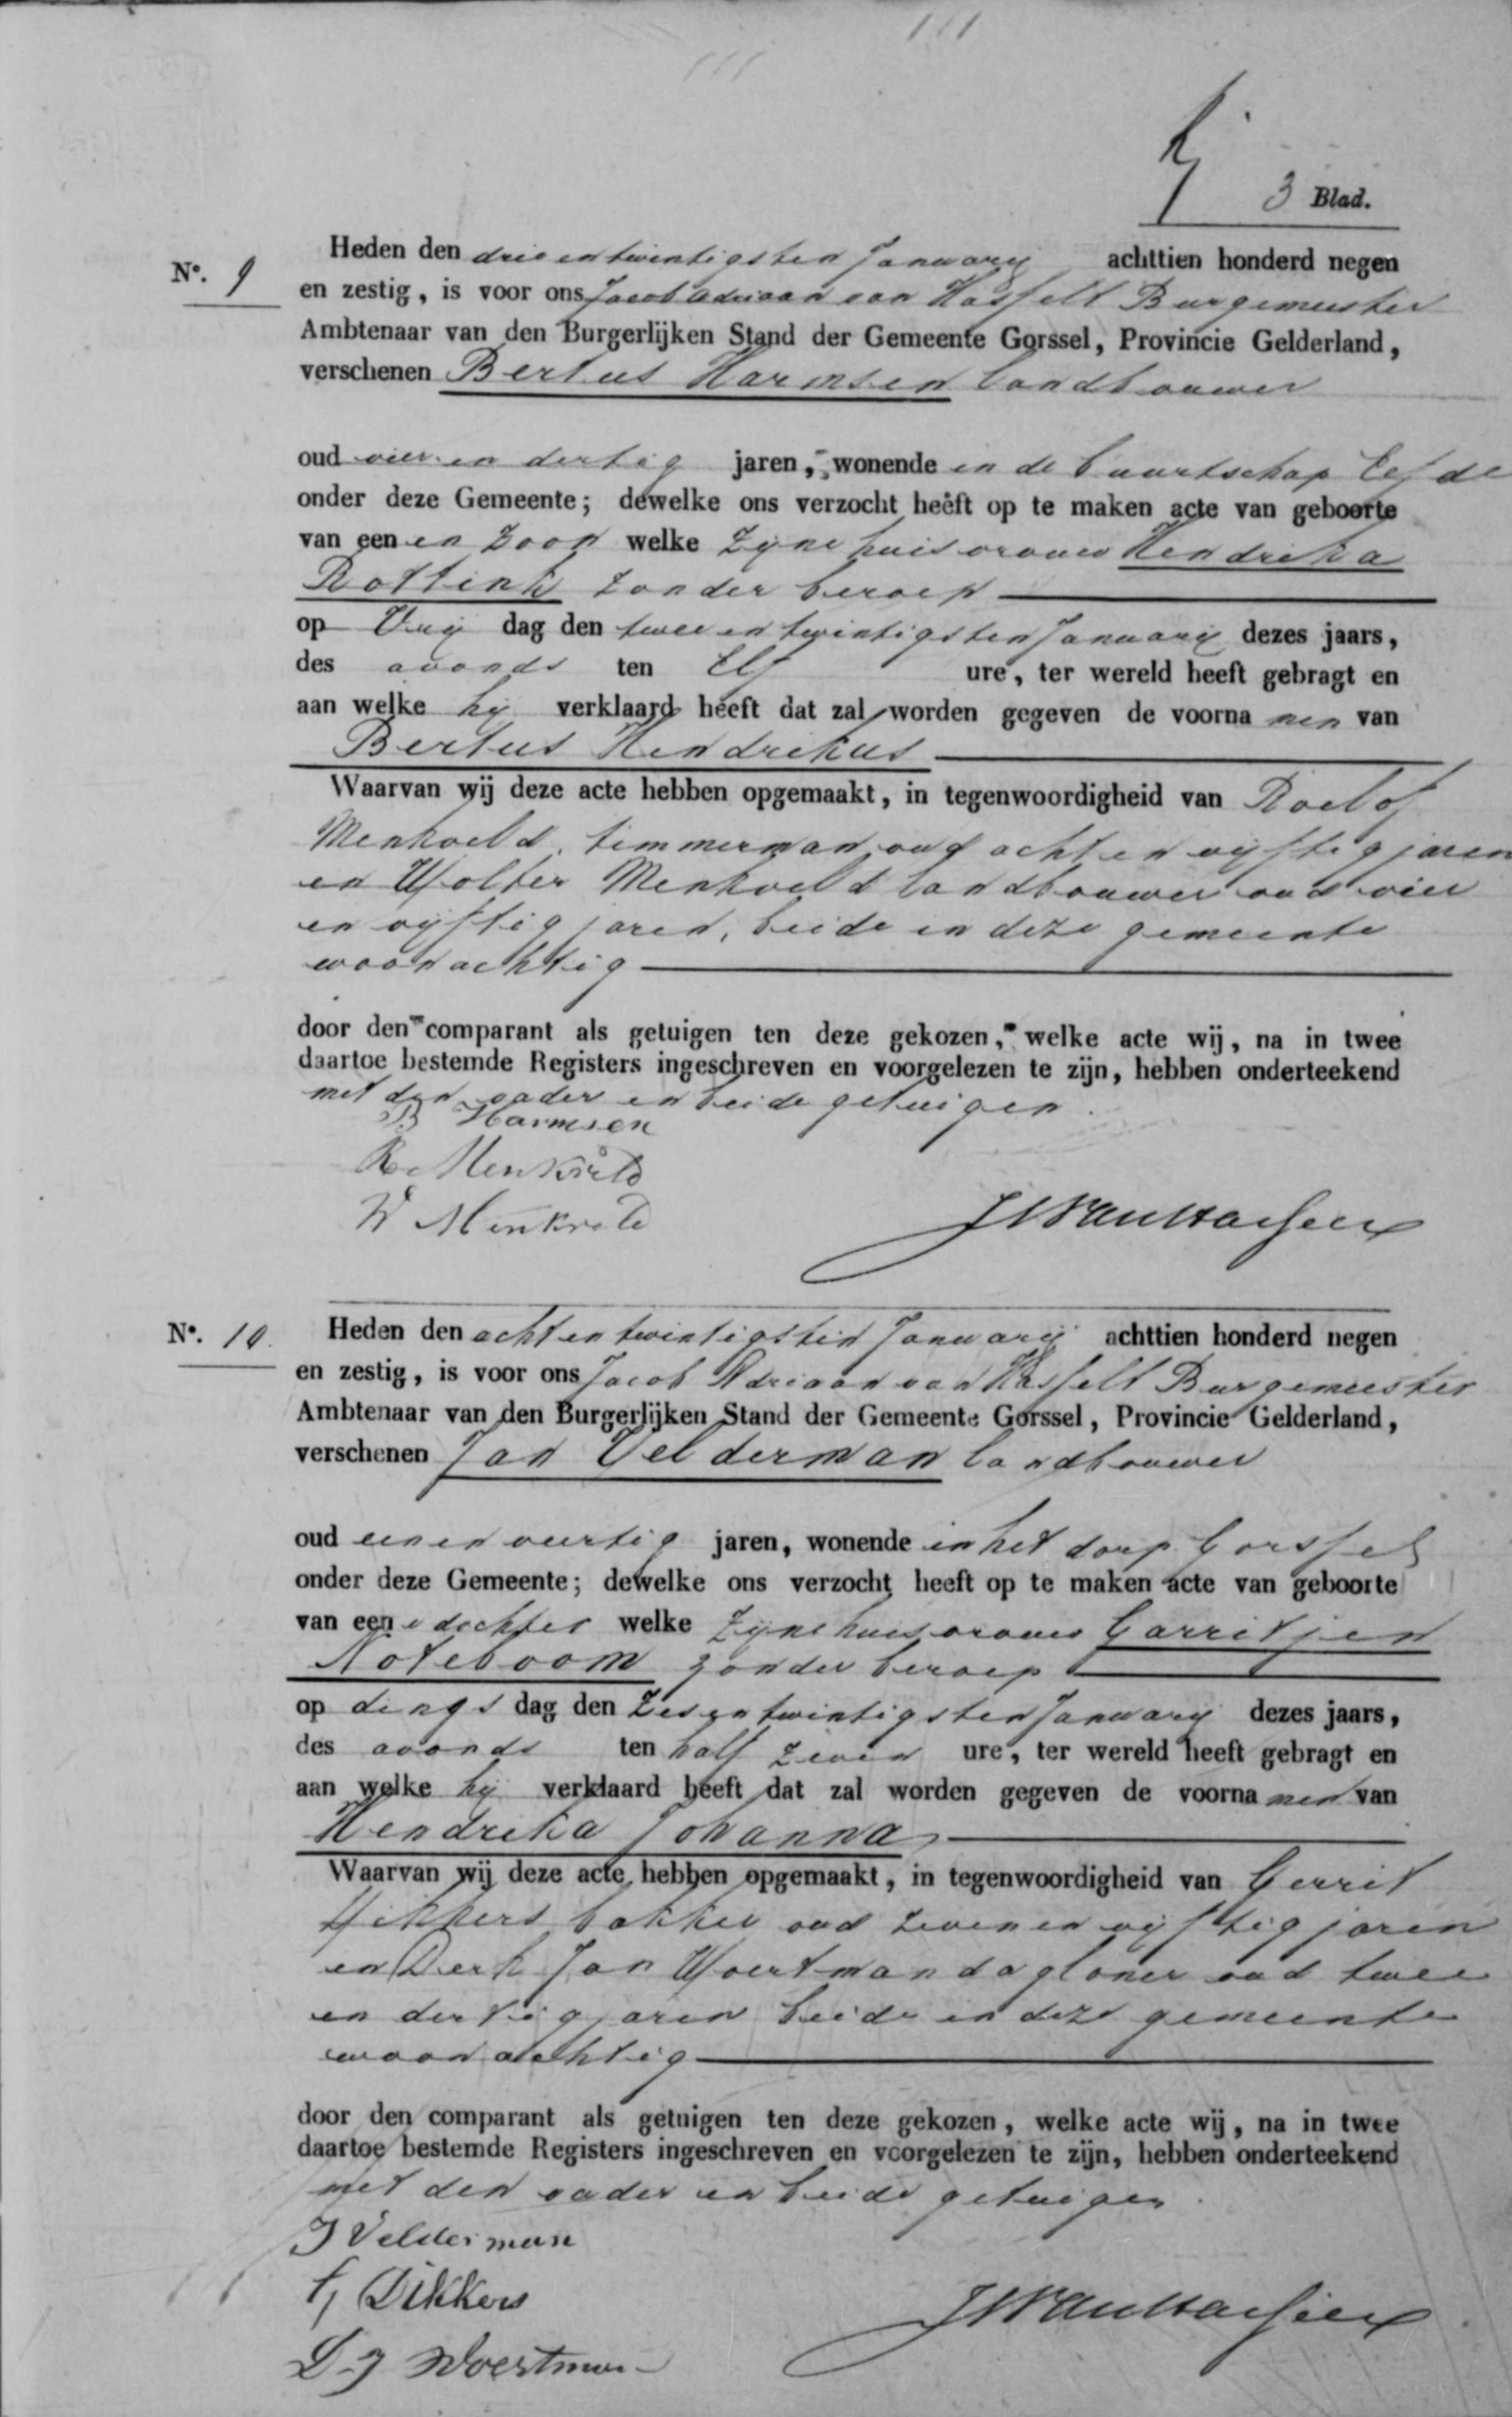 3 Blad.
Nº. 9
Heden den drie en twintigsten Januarij achttien honderd negen
en zestig, is voor ons Jacob Adriaan van Hasselt Burgemeester
Ambtenaar van den Burgerlijken Stand der Gemeente Gorssel, Provincie Gelderland,
verschenen Bertus Harmsen landbouwer
oud vier en dertig jaren, wonende in de buurtschap Eefde
onder deze Gemeente; dewelke ons verzocht heeft op te maken acte van geboorte
van een en zoon welke zijne huisvrouw Hendrika
Rottink zonder beroep
op Vrij dag den twee en twintigsten Januarij dezes jaars,
des avonds ten Elf ure, ter wereld heeft gebragt en
aan welke hij verklaard heeft dat zal worden gegeven de voorna men van
Bertus Hendrikus
Waarvan wij deze acte hebben opgemaakt, in tegenwoordigheid van Roelof
Menkveld, timmerman oud acht en vijftig jaren
en Wolter Menkveld landbouwer oud vier
en vijftig jaren, beide in deze gemeente
woonachtig
door den comparant als getuigen ten deze gekozen, welke acte wij, na in twee
daartoe bestemde Registers ingeschreven en voorgelezen te zijn, hebben onderteekend
met den vader en beide getuigen.
B Harmsen
R Menkveld
W Menkveld
JAvanHasselt
Nº. 10.
Heden den acht en twintigsten Januarij achttien honderd negen
en zestig, is voor ons Jacob Adriaan van Hasselt Burgemeester
Ambtenaar van den Burgerlijken Stand der Gemeente Gorssel, Provincie Gelderland,
verschenen Jan Velderman landbouwer
oud een en veertig jaren, wonende in het dorp Gorssel
onder deze Gemeente; dewelke ons verzocht heeft op te maken acte van geboorte
van een e dochter welke zijne huisvrouw Garritjen
Noteboom zonder beroep
op dings dag den zes en twintigsten Januarij dezes jaars,
des avonds ten half zeven ure, ter wereld heeft gebragt en
aan welke hij verklaard heeft dat zal worden gegeven de voorna men van
Hendrika Johanna
Waarvan wij deze acte hebben opgemaakt, in tegenwoordigheid van Gerrit
Dikkers bakker oud zeven en vijftig jaren
en Derk Jan Woertman dagloner oud twee
en dertig jaren beide in deze gemeente
woonachtig
door den comparant als getuigen ten deze gekozen, welke acte wij, na in twee
daartoe bestemde Registers ingeschreven en voorgelezen te zijn, hebben onderteekend
met den vader en beide getuigen.
J Velderman
G Dikkers
D.J Woertman
JAvanHasselt